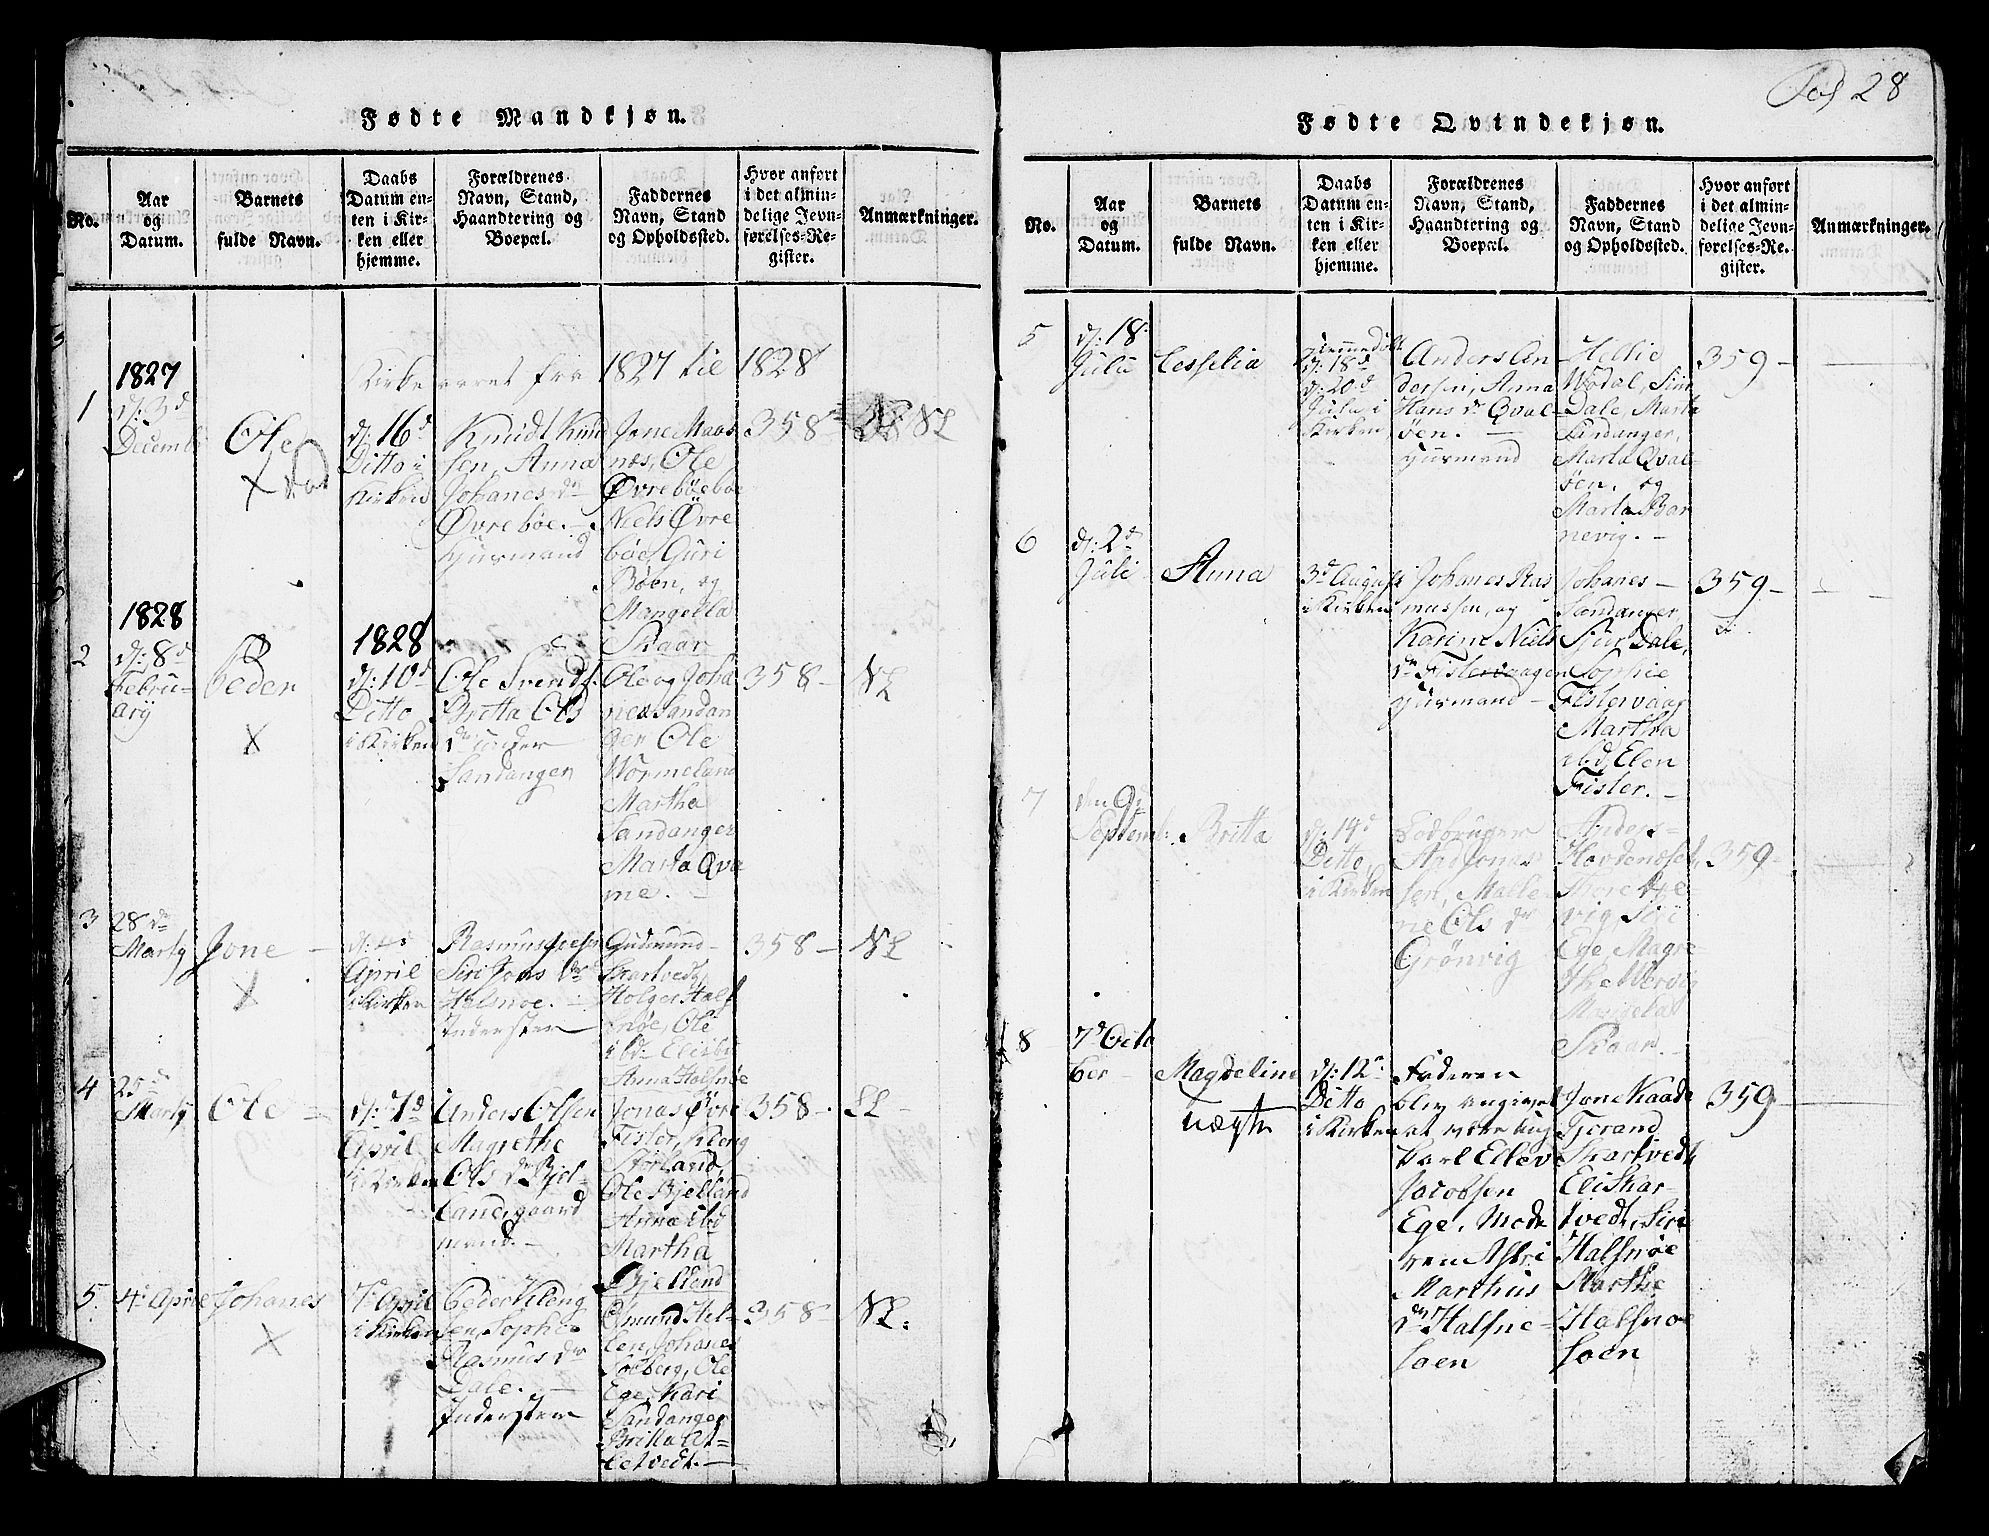 Fødte Mandkjøn.
No.
Aar
og
Datum.
Barnets
fulde Navn.
Daabs
Datum en-
ten i Kir-
ken eller
hjemme.
Forældrenes
Navn, Stand,
Haandtering og
Boepæl.
Faddernes
Navn, Stand
og Opholdssted.
Hvor anført
i det almin-
delige Jevn-
førelses-Re-
gister.
Anmærkninger.
Kirkeaaret fra 1827 til 1828
1
1827
d: 3d
Decemb
Ole
X
d: 16d
Ditto i
Kirken
Knudt Knud
sen, Anna
Johanes dr
Øvrebøe. -
Huusmand
Jone Maas
næs, Ole
Øvrebøe
Niels Øvre
bøe, Guri
Bøen, og
Mangella
Skaar
358-
NL
2
1828
d: 8d
Febru-
arÿ
Peder
X
1828
d: 10d
Ditto
i Kirken
Ole Svends.
Britta Ols
dr under
Sandanger
Ole og Joha
nes Sandan
ger Ole
Wormeland
Martha
Sandanger
Marta Qva
me. -
358-
NL
3
28de
Marty
Jone -
X
April
i Kirken
Rasmus
Siri Jons dr
Halsnøe. -
Inderster
Gudmund-
Skartvedt,
Holger Hals
nøe, Ole
ibd. Elisb.
Anna Halsnøe
358-
NL
4
25d
Marty
Ole -
d: 7d
April
i Kirken
Anders Olsen
Magrethe
Ols dr Bjel-
land, gaard
mand. -
Jonas Øvre
Fister, Kleng
Størland,
Ole Bjelland
Anna ibd
Martha
Bjelland
358-
LL-
5.
4de April
Johanes
X
7de April
i Kirken
Peder Kleng
sen, Sophie
Rasmus dr
Dale. -
Inderster
Osmund Hel-
len, Johanes
Solberg, Ole
Ege, Kari
Sandanger
Britta At-
letvedt. -
358-
NL.
Pag 28
Fødte Qvindekjøn.
No.
Aar
og
Datum.
Barnets
fulde Navn.
Daabs
Datum en-
ten i Kir-
ken eller
hjemme.
Forældrenes
Navn, Stand,
Haandtering og
Boepæl.
Faddernes
Navn, Stand
og Opholdssted.
Hvor anført
i det almin-
delige Jevn-
førelses-Re-
gister.
Anmærkninger.
5
d: 18
Julii
Cesselia
hjemmedøbt
d: 18d
d: 20d
Julii i
Kirken
Anders An
dersen, Anna
Hans dr Qval-
øen. -
Huusmand
Hellie
Wodal, Siri
Dale, Marta
Sandanger,
Marta Qval-
øen, og
Marta Bar
nevig. -
359-
6
d: 2d
Juli
Anna
3d August
i Kirken
Johanes Ras
mussen, og
Karine Niels
dr Fistervaagen
Huusmand -
Johanes -
Sandanger
Siur Dale,
Sophie
Fistervaag
Martha
ibd, Elen
Fister. -
359-
7
den 9d
Septemb:
Britta
d: 14d
Ditto
i Kirken
Lodbruger
Jonas
sen, Malle
ne Ols dr
Grønvig
Anders
Hovdenæset,
Thore
vig, Siri
Ege Magre
the
Skaar. -
359-
8
7d Octo
ber -
Magdelina
uægte
d: 12d
Ditto
i Kirken
Faderen
blev angivet
at være ung
karl Ellev
Jacobsen
Ege, Mode
ren Astri
Marthus
dr Halsne-
søen
Jone Kaada
Tjerand
Skartvedt
Eli Skar-
tvedt, Siri
Halsnøe
Marthe
Halsnøe
søen
359-